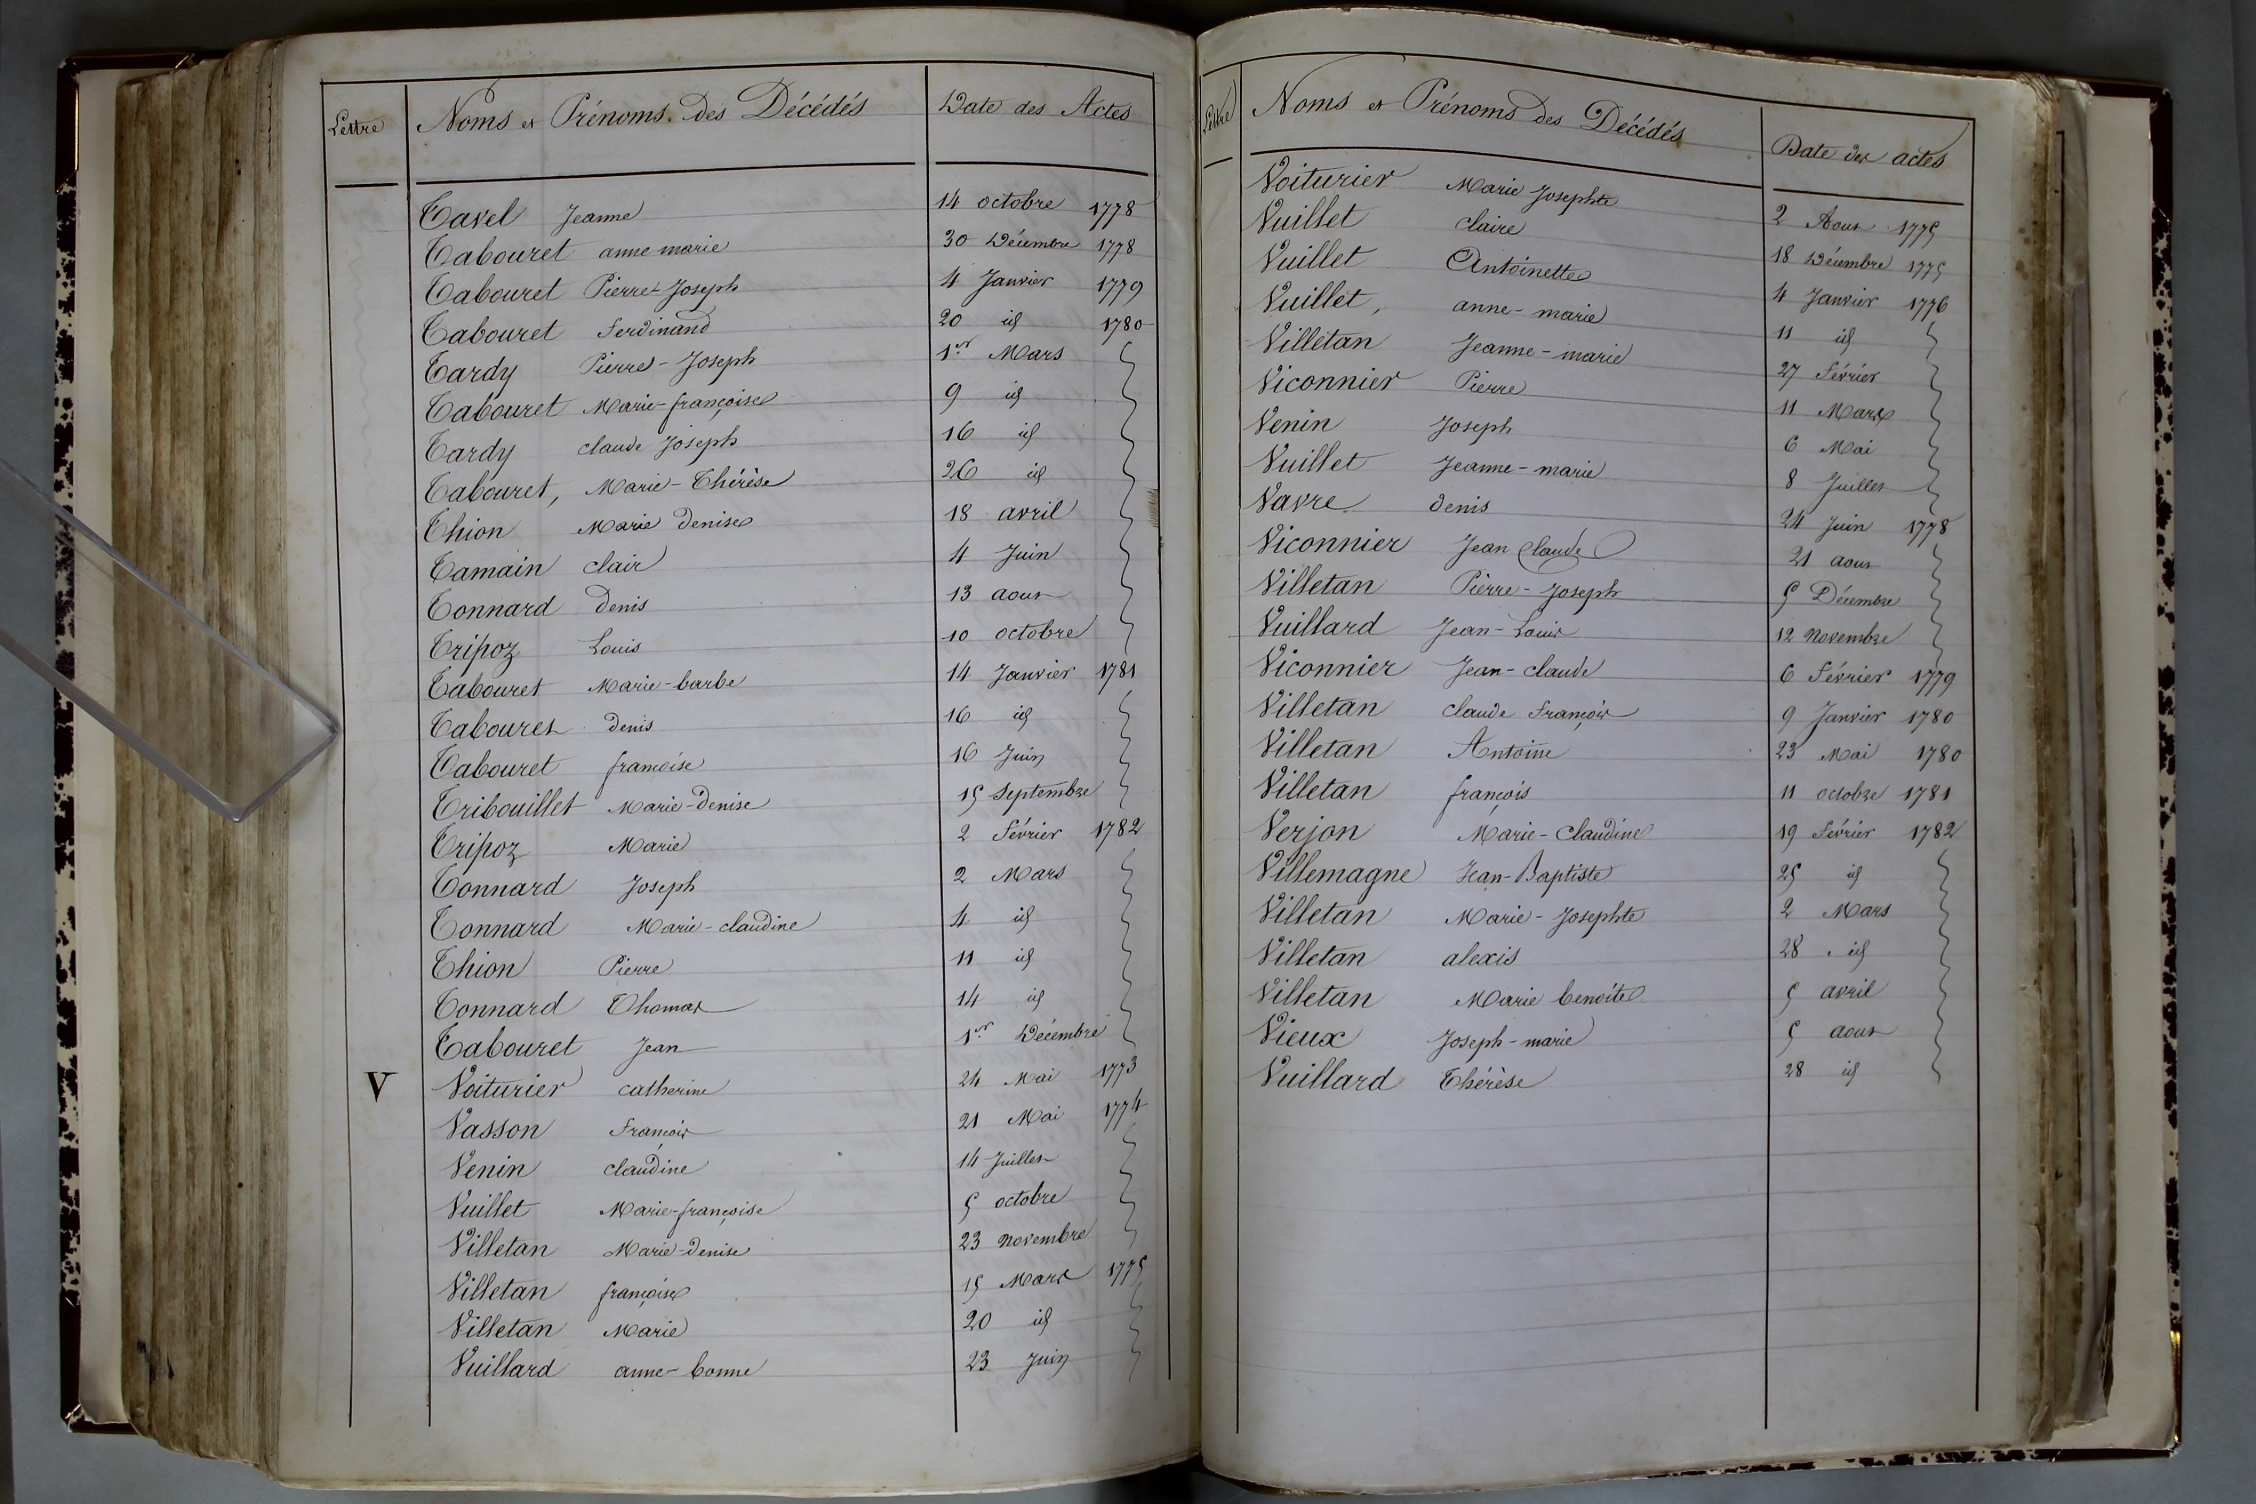 Lettre Noms et Prénoms des Décédés Date des Actes
Tavel Jeanne 14 octobre 1778
Tabouret anne marie 30 Décembre 1778
Tabouret Pierre-Joseph 4 Janvier 1779
Tabouret Ferdinand 20 id 1780
Tardy Pierre-Joseph 1er Mars
Tabouret Marie-françoise 9 id
Tardy claude Joseph 16 id
Tabouret, Marie-Thérèse 26 id
Thion Marie Denise 18 avril
Tamain clair 4 Juin
Tonnard Denis 13 aout
Tripoz Louis 10 octobre
Tabouret Marie-barbe 14 Janvier 1781
Tabouret Denis 16 id
Tabouret françoise 16 Juin
Tribouillet Marie-Denise 15 Septembre
Tripoz Marie 2 Février 1782
Tonnard Joseph 2 Mars
Tonnard Marie-claudine 4 id
Thion Pierre 11 id
Tonnard Thomas 14 id
Tabouret Jean 1er Décembre
V Voiturier catherine 24 Mai 1773
Vasson François 21 Mai 1774
Venin claudine 14 Juillet
Vuillet Marie-françoise 5 octobre
Villetan Marie-Denise 23 novembre
Villetan françoise 15 Mars 1775
Villetan Marie 20 id
Vuillard anne-bonne 23 Juin
Lettre Noms et Prénoms des Décédés Date des actes
Voiturier Marie Josephte 2 Aout 1775
Vuillet claire 18 Décembre 1775
Vuillet Antoinette 4 Janvier 1776
Vuillet, anne-marie 11 id
Villetan Jeanne-marie 27 Février
Viconnier Pierre 11 Mars
Venin Joseph 6 Mai
Vuillet Jeanne-marie 8 Juillet
Vavre denis 24 Juin 1778
Viconnier Jean Claude 21 aout
Villetan Pierre-Joseph 5 Décembre
Vuillard Jean-Louis 12 novembre
Viconnier Jean-claude 6 Février 1779
Villetan claude François 9 Janvier 1780
Villetan Antoine 23 Mai 1780
Villetan françois 11 octobre 1781
Verjon Marie-Claudine 19 Février 1782
Villemagne Jean-Baptiste 25 id
Villetan Marie-Josephte 2 Mars
Villetan alexis 28 id
Villetan Marie benoite 5 avril
Vieux Joseph-marie 5 aout
Vuillard Thérèse 28 id